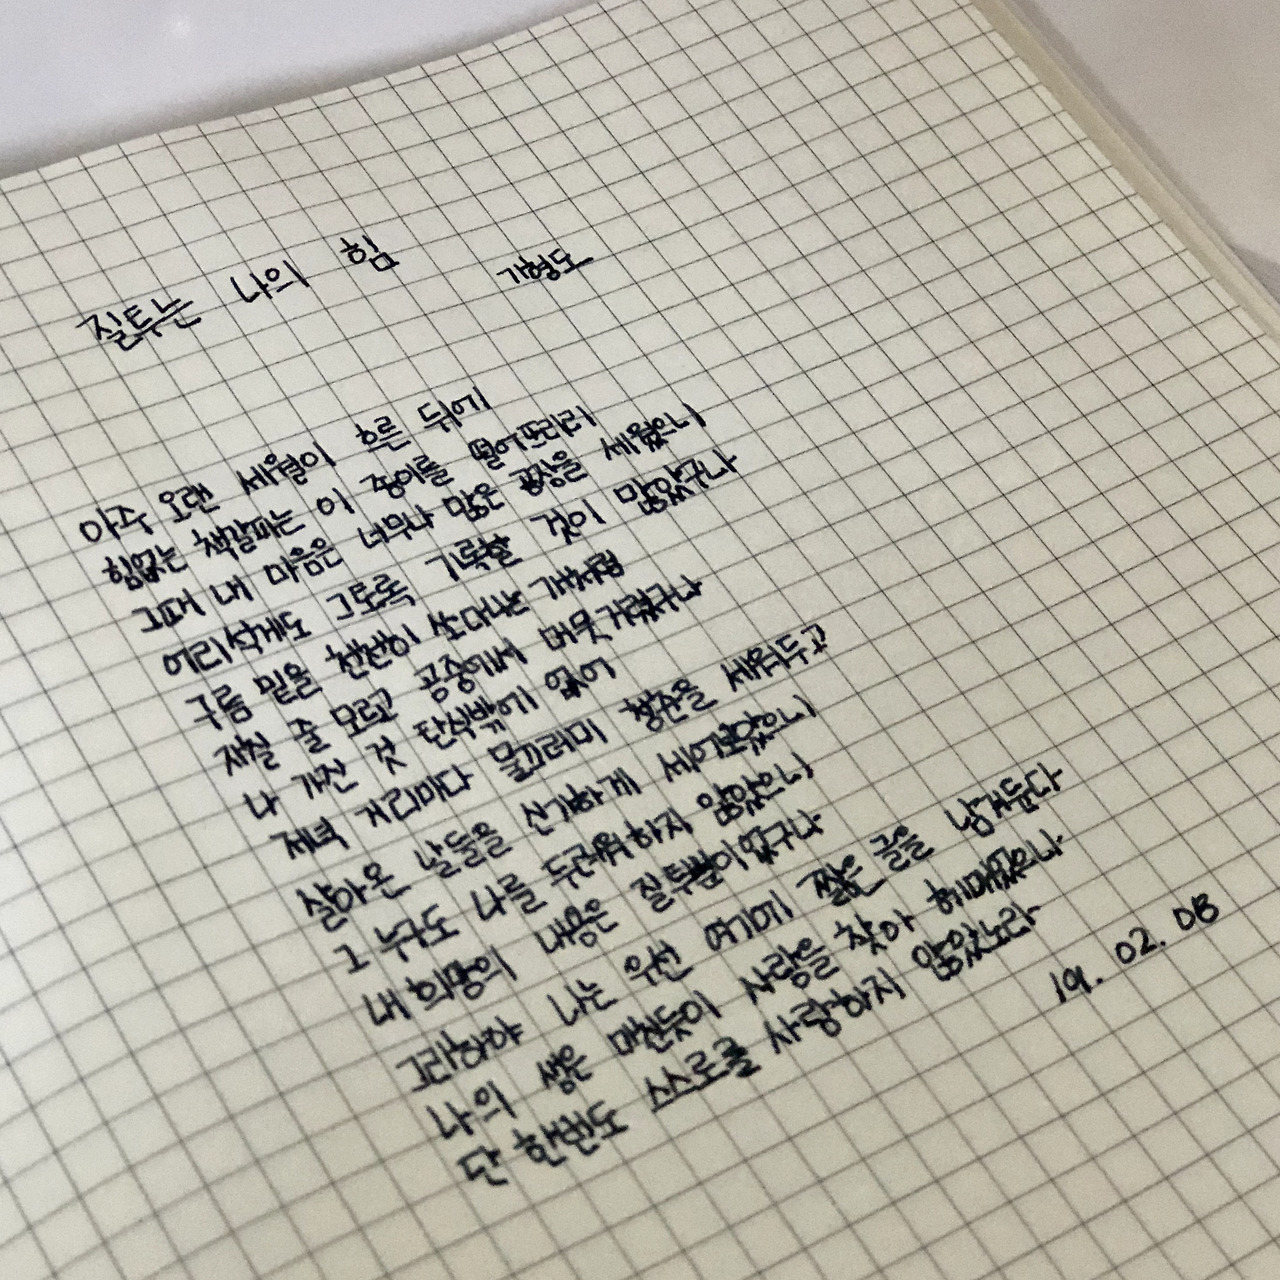 질투는 나의 힘
기형도
아주 오랜 세월이 흐른 뒤에
힘없는 책갈피는 이 종이를 떨어뜨리리
그때 내 마음은 너무나 많은 공장을 세웠으니
어리석게도 그토록 기록할 것이 많았구나
구름 밑을 천천히 쏘다니는 개처럼
지칠 줄 모르고 공중에서 머뭇거렸구나
나 가진 것 탄식밖에 없어
저녁 거리마다 물끄러미 청춘을 세워두고
살아온 날들을 신기하게 세어보았으니
그 누구도 나를 두려워하지 않았으니
내 희망의 내용은 질투뿐이었구나
그리하야 나는 우선 여기에 짧은 글을 남겨둔다
나의 생은 미친듯이 사랑을 찾아 헤매었으나
단 한번도 스스로를 사랑하지 않았노라
19. 02. 08